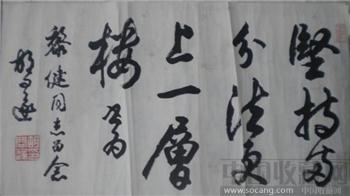 堅持两
分法更
上一層
楼 书为
黎健同志留念
胡问遂
中国收藏网
www.socang.com